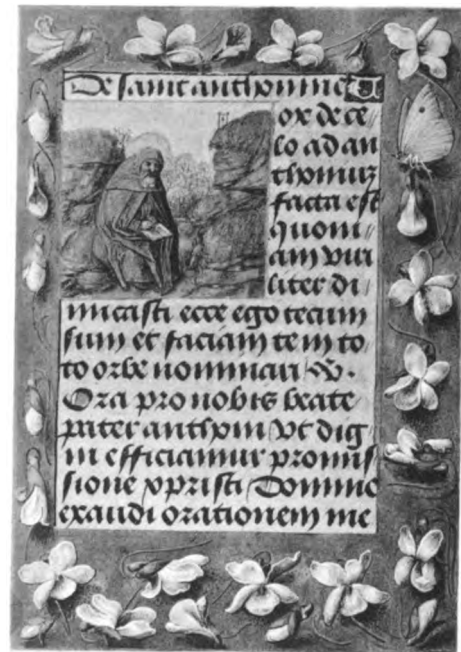 De sainct anthoinne
Vox de ce
lo ad an
thoniuz
facta est
quoni
am viri
liter di
micasti ecce ego tecum
sum et faciam te in to
to orbe nominari
Ora pro nobis beate
pater anthoni Vt dig
ni efficiamur promis
sione xpristi Domine
exaudi orationem me